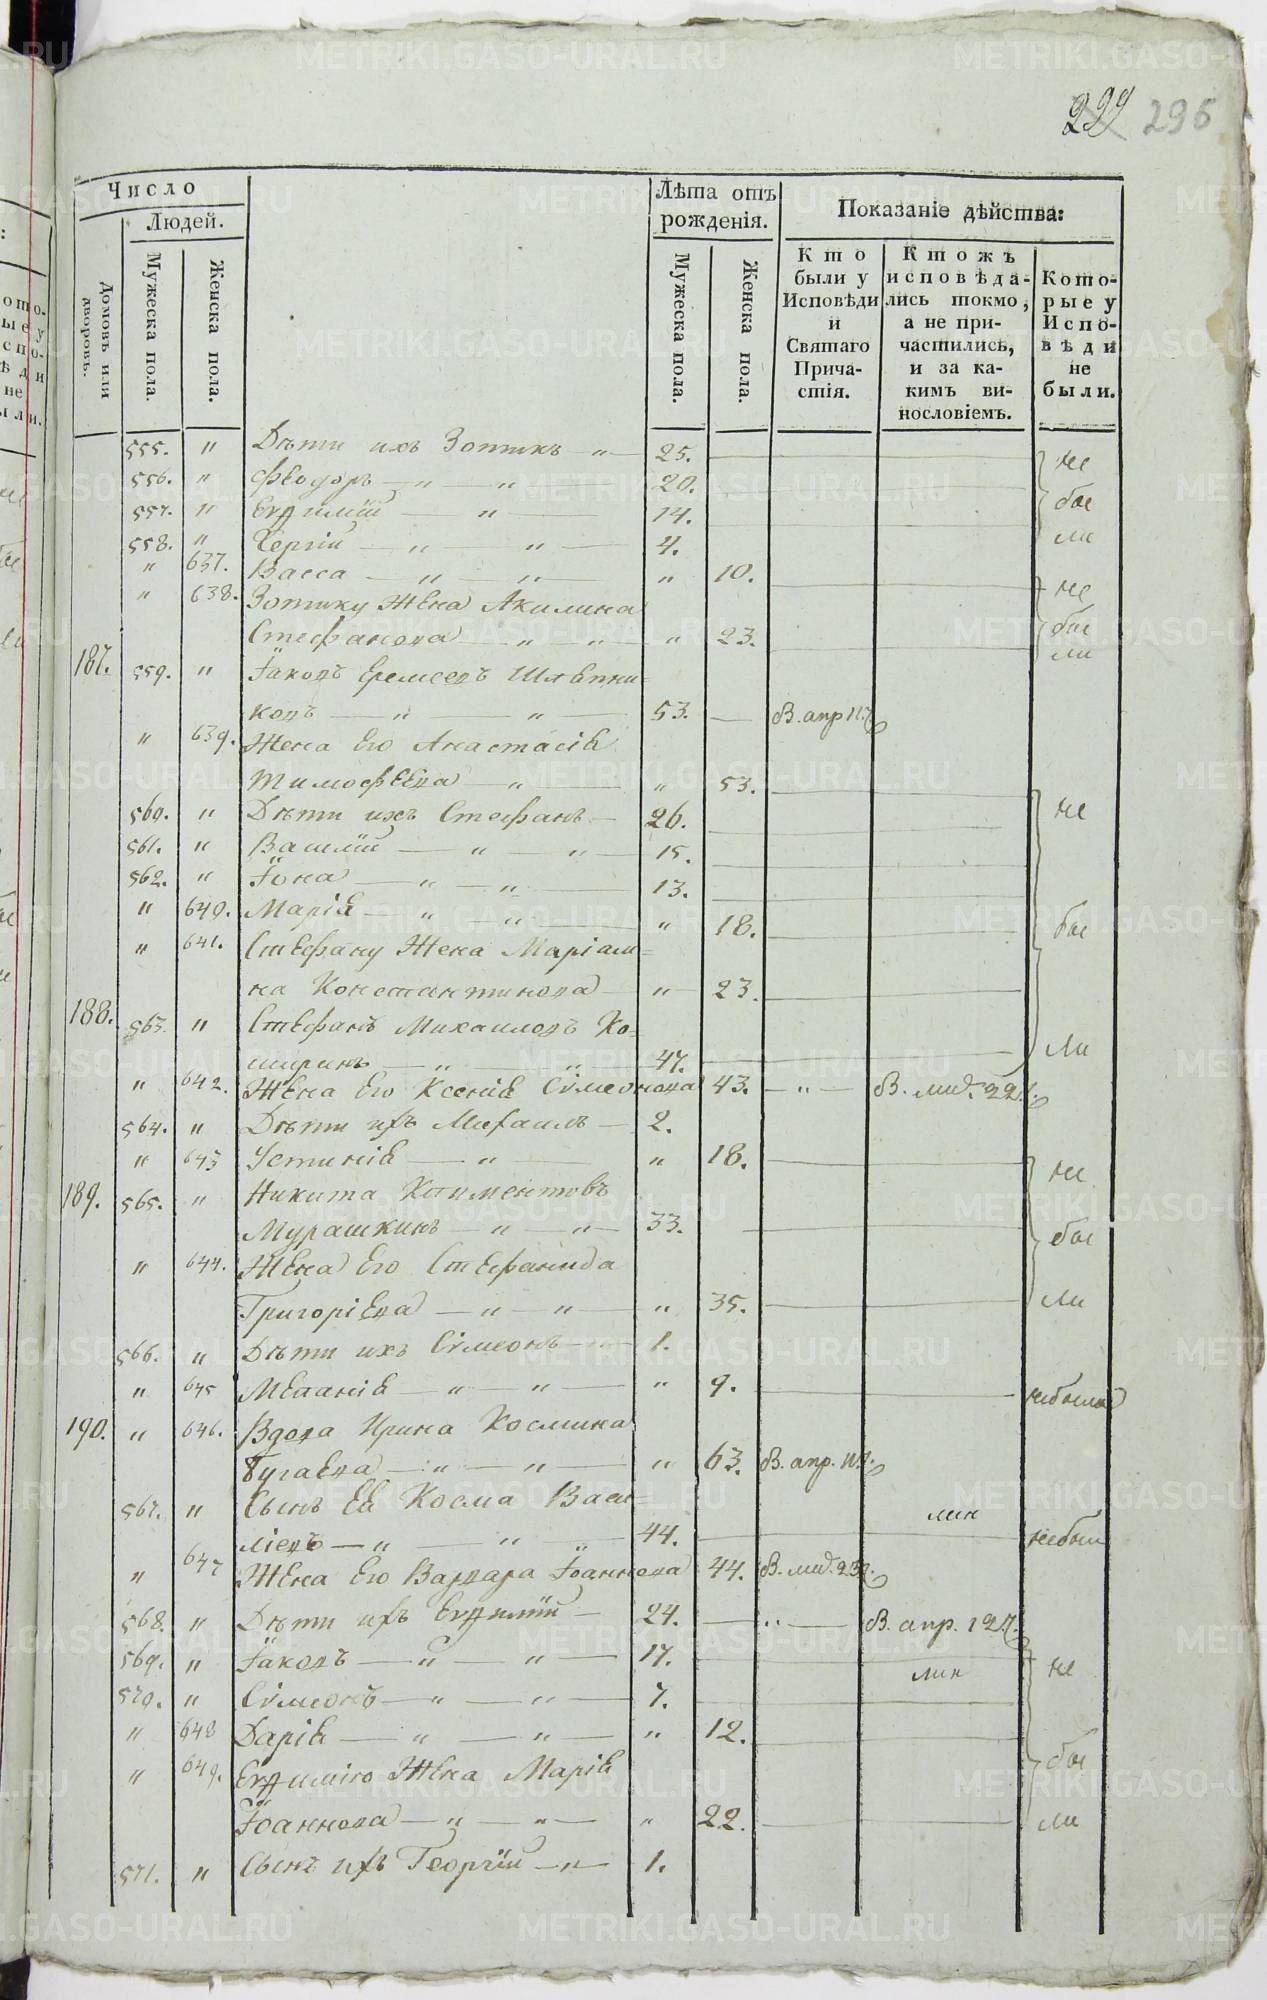 299 295
Число
Людей.
Домовъ или дворовъ.
Мужеска пола.
Женска пола.
Лѣта отъ рожденія.
Мужеска пола.
Женска пола.
Показаніе дѣйства:
Кто были у Исповѣди и Святаго Причастія.
Ктожъ исповѣдались токмо, а не причастились, и за какимъ винословіемъ.
Которые у Исповѣди не были.
555. " Дѣти ихъ Зотикъ — " — 25. не
556. " Феодоръ — " — " 20. бы
557. " Евѳимій — " — 14.
558. " Сергій — " — " — 4. ли
" 637. Васса — " — " — " 10.
" 638. Зотику Жена Акилина не
Стефанова — " — " — " 23. бы ли
187. 559. " Іаковъ Еремеевъ Шляпни=
ковъ — " — " — 53. — В. апр 11.
" 639. Жена Его Анастасіѧ
Тимофеева — " — " 53.
560. " Дѣти ихъ Стефанъ — 26. не
561. " Василій — " — " — 15.
562. " Іона — " — " — 13.
" 640. Маріѧ — " — " — " 18. бы
" 641. Стефану Жена Маріам=
на Константинова — " — 23.
188. 563. " Стефанъ Михаиловъ Ко=
ширинъ — " — " 47. ли
" 642. Жена Его Ксеніѧ Сѵмеонова 43. — " — В.
564. " Дѣти ихъ Михаилъ — 2.
" 643 Устиніѧ — " — " 18. не
189. 565. " Никита Климентовъ
Мурашкинъ — " — " — 33. бы
" 644. Жена Его Стефанида
Григоріева — " — " — " 35. ли
566. " Дѣти ихъ Сѵмеонъ — 1.
" 645 Меланіѧ — " — " — " 9. небыла
190. " 646. Вдова Ирина Космина
Бугаева — " — " — " 63. В. апр.
567. " Сынъ Еѧ Косма Васи=
ліевъ — " — " — 44. небыл
" 647 Жена Его Варвара Іоаннова 44. В.
568. " Дѣти ихъ Евѳимій — 24. — " — В. апр.
569. " Іаковъ — " — " — 17. не
570. " Сѵмеонъ — " — " — 7.
" 648 Даріѧ — " — " — " 12.
" 649. Евѳимію Жена Маріѧ бы
Іоаннова — " — " — " 22. ли
571. " Сынъ ихъ Георгій — " — 1.
METRIKI.GASO-URAL.RU